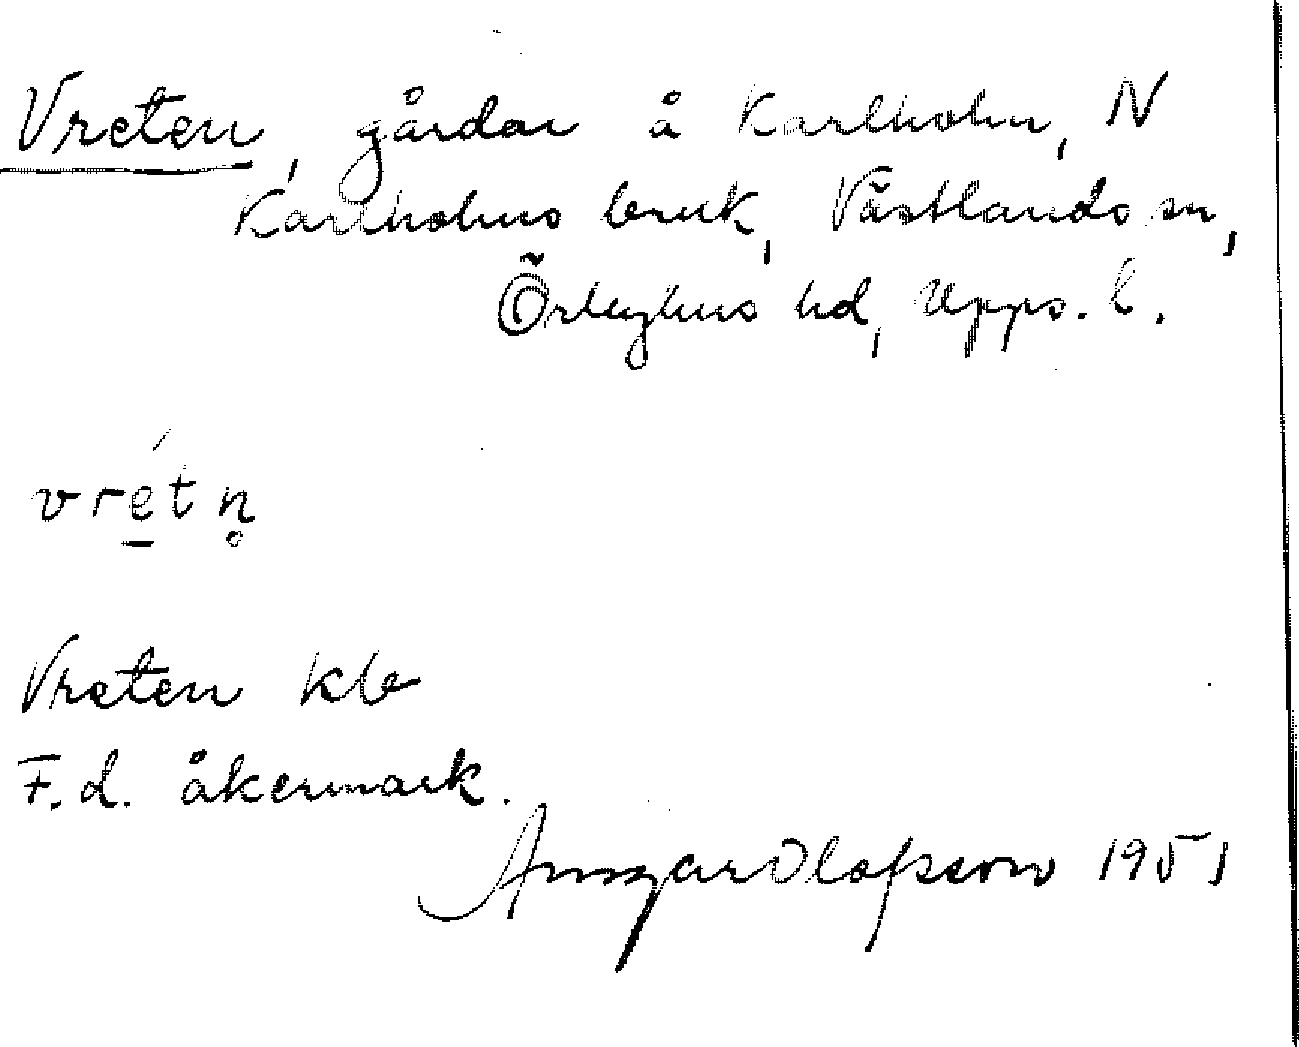 Vreten, gårdar å Karlholm, N
Karlholms bruk, Västlands sn,
Örbyhus hd, Upps. l.
vrę́tn̥
Vreten kb
F.d. åkermark.
Ansgar Olofsson 1951